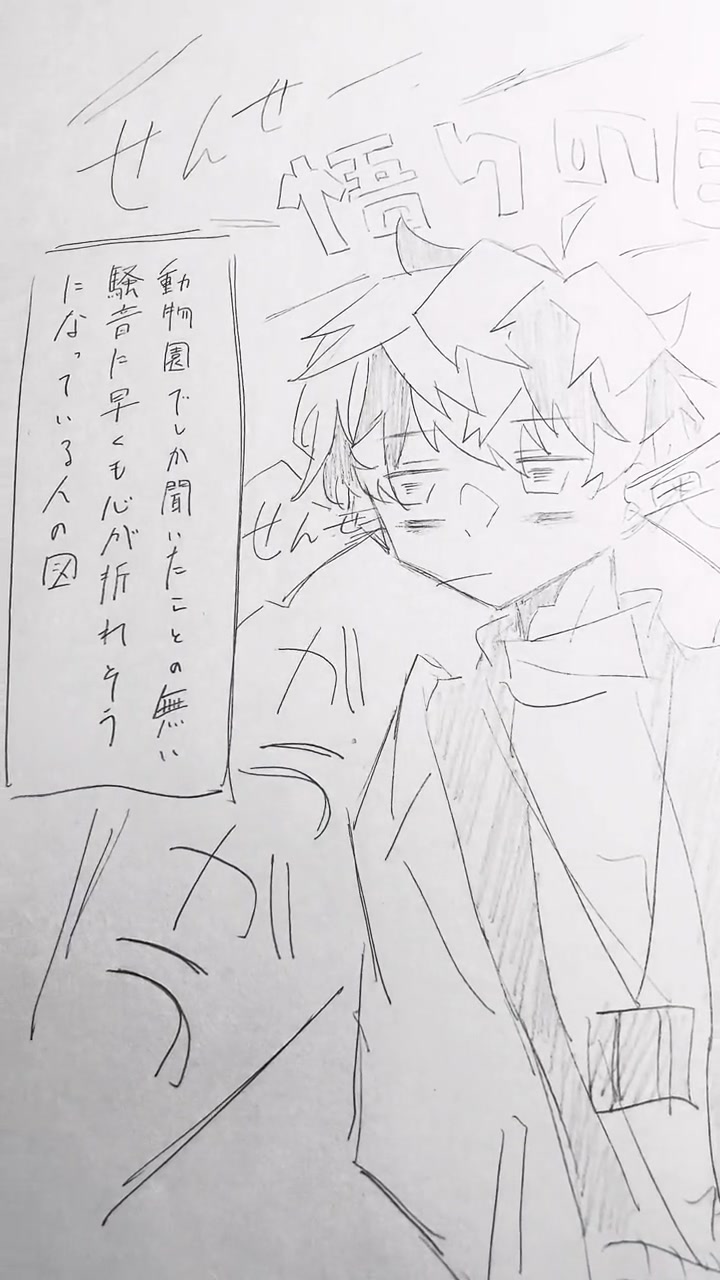 せんせ
悟りの
動物園でしか聞いたことの無い
騒音に早くも心が折れそう
になっている人の図
せんせ
ガヤ
ガヤ